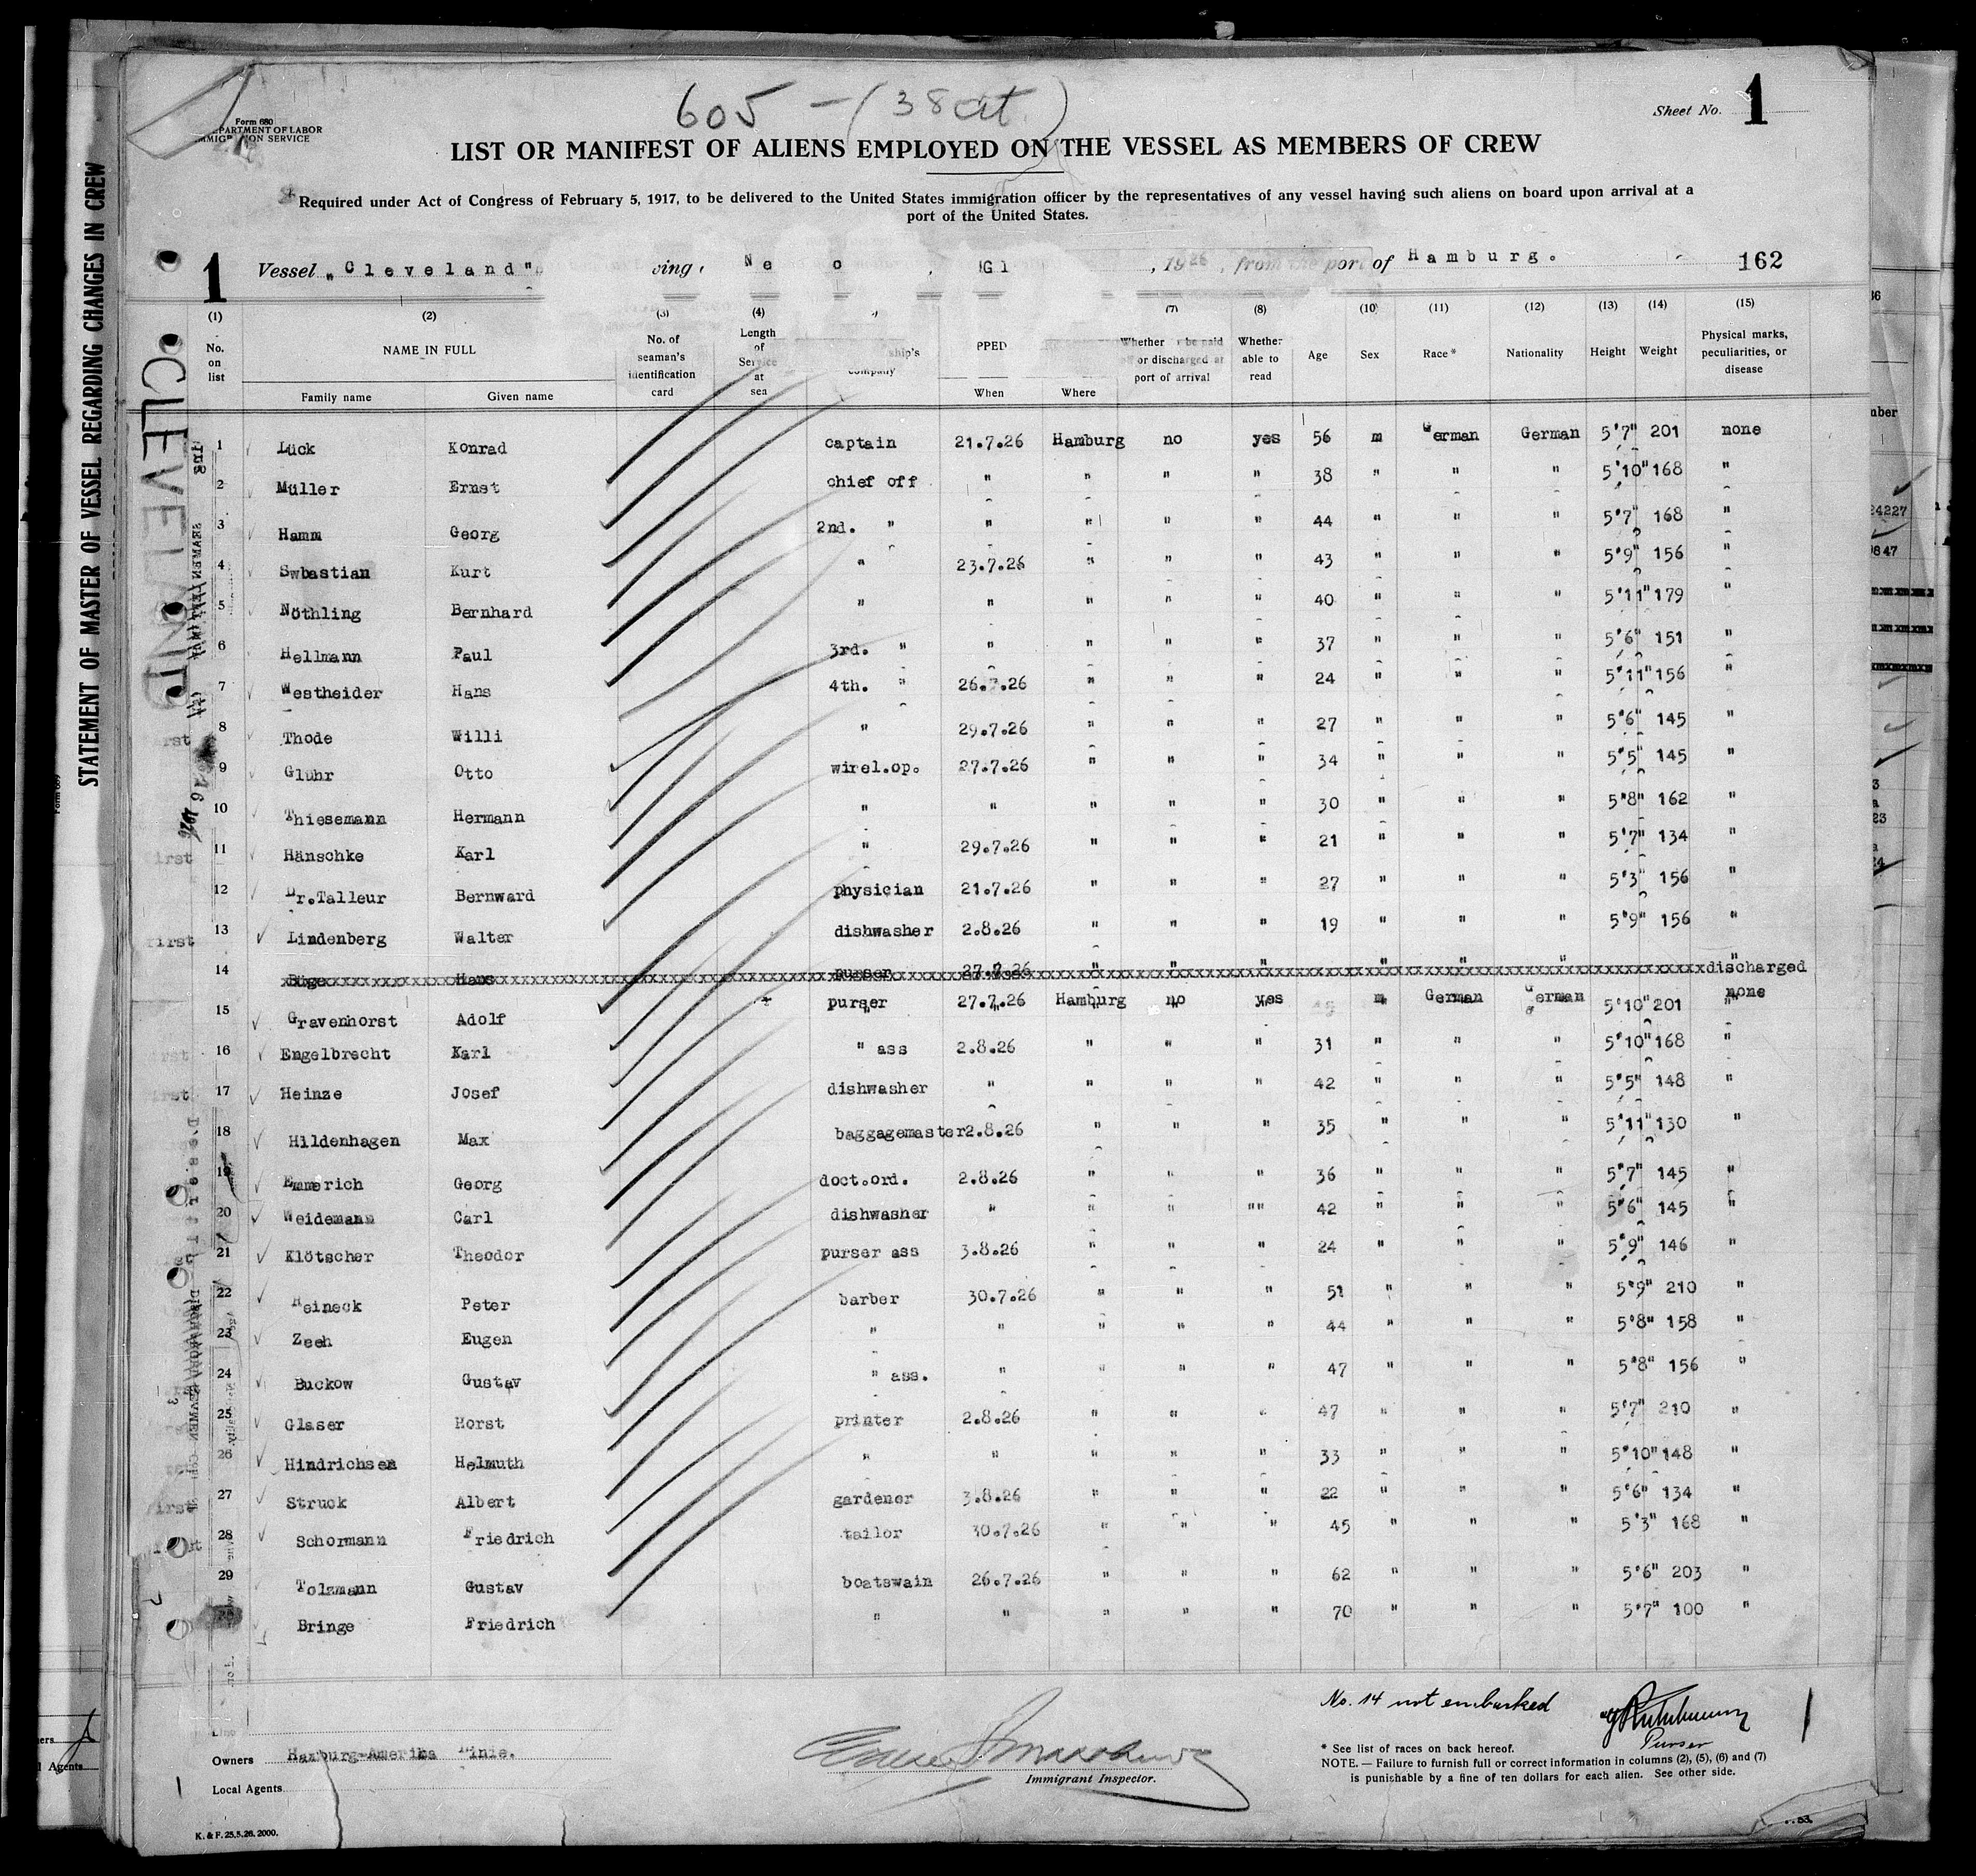 605 - (38 at )
Form 680
DEPARTMENT OF LABOR
IMMIGRATION SERVICE
Sheet No. 1
LIST OR MANIFEST OF ALIENS EMPLOYED ON THE VESSEL AS MEMBERS OF CREW
Required under Act of Congress of February 5, 1917, to be delivered to the United States immigration officer by the representatives of any vessel having such aliens on board upon arrival at a
port of the United States.
1 Vessel "Cleveland" , 1926, from the port of Hamburg. 162
STATEMENT OF MASTER OF VESSEL REGARDING CHANGES IN CREW
CLEVELAND
(1) (2) (3) (4) (7) (8) (10) (11) (12) (13) (14) (15)
No. on list NAME IN FULL No. of seaman's identification card Length of Service at sea ship's company PPED Whether be paid off or discharged at port of arrival Whether able to read Age Sex Race* Nationality Height Weight Physical marks, peculiarities, or disease
Family name Given name When Where
1 Lück Konrad captain 21.7.26 Hamburg no yes 56 m German German 5'7" 201 none
2 Müller Ernst chief off " " " " 38 " " " 5'10" 168 "
3 Hamm Georg 2nd. " " " " " 44 " " " 5'7" 168 "
4 Swbastian Kurt " 23.7.26 " " " 43 " " " 5'9" 156 "
5 Nöthling Bernhard " " " " " 40 " " " 5'11" 179 "
6 Hellmann Paul 3rd. " " " " " 37 " " " 5'6" 151 "
7 Westheider Hans 4th. " 26.7.26 " " " 24 " " " 5'11" 156 "
8 Thode Willi " 29.7.26 " " " 27 " " " 5'6" 145 "
9 Glühr Otto wirel.op. 27.7.26 " " " 34 " " " 5'5" 145 "
10 Thiesemann Hermann " " " " " 30 " " " 5'8" 162 "
11 Hänschke Karl " 29.7.26 " " " 21 " " " 5'7" 134 "
12 Dr.Talleur Bernward physician 21.7.26 " " " 27 " " " 5'3" 156 "
13 Lindenberg Walter dishwasher 2.8.26 " " " 19 " " " 5'9" 156 "
14 Büge Hans purser 27.7.26 " " " " " " " discharged
15 Gravenhorst Adolf purser 27.7.26 Hamburg no yes m German German 5'10" 201 none
16 Engelbrecht Karl " ass 2.8.26 " " " 31 " " " 5'10" 168 "
17 Heinze Josef dishwasher " " " " 42 " " " 5'5" 148 "
18 Hildenhagen Max baggagemaster 2.8.26 " " " 35 " " " 5'11" 130 "
19 Emmerich Georg doct.ord. 2.8.26 " " " 36 " " " 5'7" 145 "
20 Weidemann Carl dishwasher " " " "" 42 " " " 5'6" 145 "
21 Klötscher Theodor purser ass 3.8.26 " " " 24 " " " 5'9" 146 "
22 Heineck Peter barber 30.7.26 " " " 51 " " " 5'9" 210 "
23 Zeeh Eugen " " " " " 44 " " " 5'8" 158 "
24 Buckow Gustav " ass. " " " " 47 " " " 5'8" 156 "
25 Glaser Horst printer 2.8.26 " " " 47 " " " 5'7" 210 "
26 Hindrichsen Helmuth " " " " " 33 " " " 5'10" 148 "
27 Struck Albert gardener 3.8.26 " " " 22 " " " 5'6" 134 "
28 Schormann Friedrich tailor 30.7.26 " " " 45 " " " 5'3" 168 "
29 Tolzmann Gustav boatswain 26.7.26 " " " 62 " " " 5'6" 203 "
Bringe Friedrich " " " " " 70 " " " 5'7" 100 "
No. 14 not embarked
Purser
Line
Owners Hamburg-Amerika Linie.
Local Agents
Immigrant Inspector.
* See list of races on back hereof.
NOTE. — Failure to furnish full or correct information in columns (2), (5), (6) and (7)
is punishable by a fine of ten dollars for each alien. See other side.
K. & F. 25.5.26. 2000.